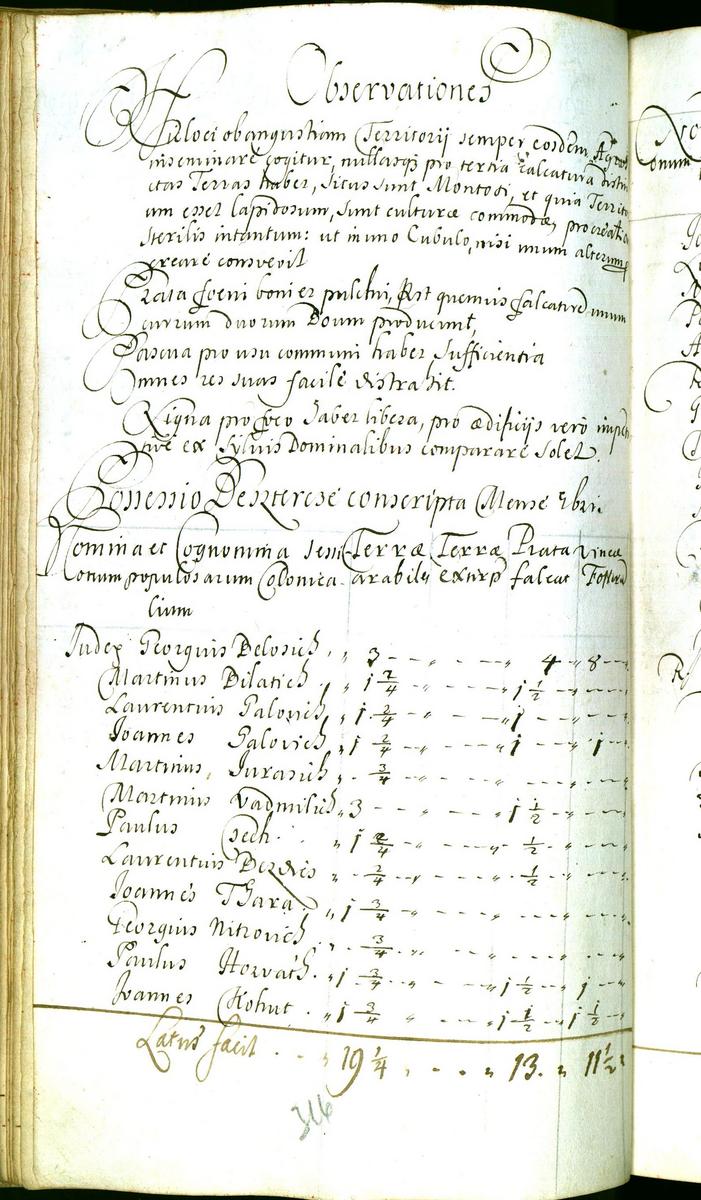 Observationes
Hujus loci ob angustiam Territorij semper eosdem Agros
inseminare cogitur, nullasqs pro tertia calcatura distin
ctas Terras habet, sicut sunt Montosi, et quia Territo
um esset lapidosum, sunt culturæ commodæ,
sterilis intantum: ut in uno Cubulo, nisi unum alterumqs
creare consvevit
Prata foeni boni et pulchri, Ast quemvis falcatura unum
currum duorum Boum producunt,
Pascua pro usu communi habet Sufficientia
Omnes res suas facile distrahit.
Ligna pro foco habet libera, pro ædificijs verò
ex Sylvis Dominalibus comparare solet.
Possessio conscripta Mense 8bri
Nomina et Cognomina Sessi Terræ Terræ Prata Vineæ
onum populosarum Colonica arabiles extirp falcat Fossura
lium
Judex Georgius Belosich 3 4 8
Martinus Bilatich 1 2/4 1 1/2
Laurentius Palovich 1 2/4 1
Joannes Palovich 1 2/4 1 1
Martinus Jurasich 3/4
Martinus Vadmilich 3 1 1/2
Paulus Cseh 1 2/4 1/2
Laurentius 2/4 1/2
Joannes Thara 1 3/4
Georgius Nitrovich 3/4
Paulus Horvath 1 3/4 1 1/2 1
Joannes Kohut 1 3/4 1 1/2 1 1/2
Latus facit 19 1/4 13. 11 1/2
316